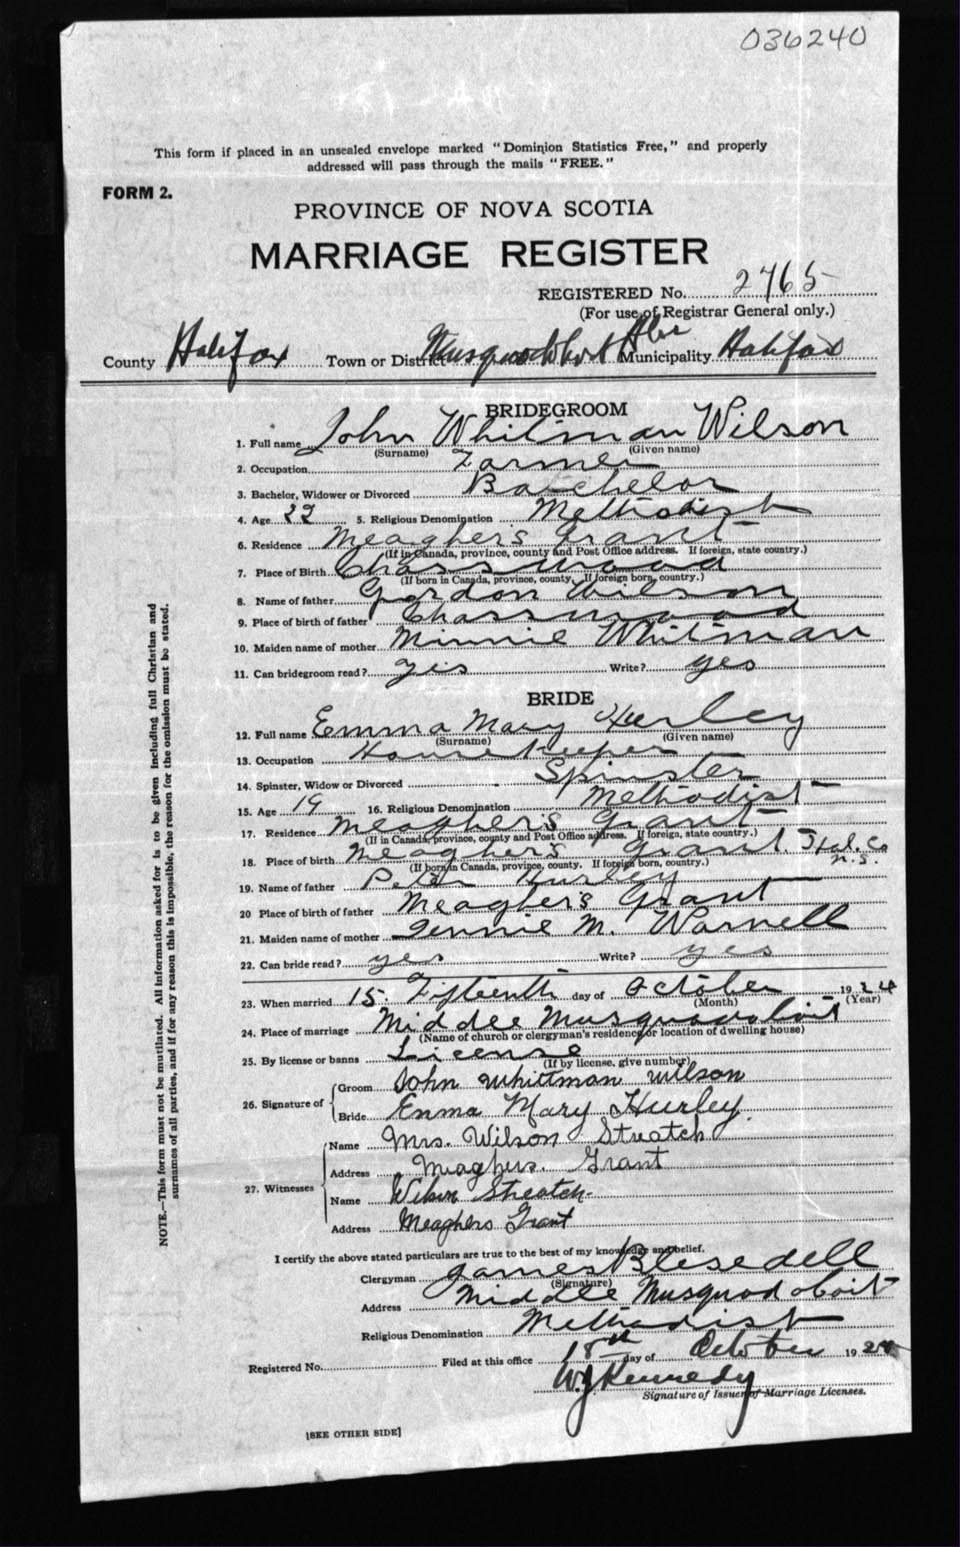 036240
This form if placed in an unsealed envelope marked "Dominion Statistics Free," and properly
addressed will pass through the mails "FREE."
FORM 2.
PROVINCE OF NOVA SCOTIA
MARRIAGE REGISTER
REGISTERED No. 2765
(For use of Registrar General only.)
County Halifax Town or District Musquodoboit Hbr Municipality Halifax
BRIDEGROOM
1. Full name John Whitman Wilson
(Surname) (Given name)
2. Occupation Farmer
3. Bachelor, Widower or Divorced Batchelor
4. Age 22 5. Religious Denomination Methodist
6. Residence Meagher's Grant
(If in Canada, province, county and Post Office address. If foreign, state country.)
7. Place of Birth Chasswood
(If born in Canada, province, county. If foreign born, country.)
8. Name of father Gordon Wilson
9. Place of birth of father Chasswood
10. Maiden name of mother Minnie Whitman
11. Can bridegroom read? yes Write? yes
BRIDE
12. Full name Emma Mary Hurley
(Surname) (Given name)
13. Occupation Housekeeper
14. Spinster, Widow or Divorced Spinster
15. Age 19 16. Religious Denomination Methodist
17. Residence Meagher's Grant
(If in Canada, province, county and Post Office address. If foreign, state country.)
18. Place of birth Meagher's Grant. Hal. Co
N.S.
(If born in Canada, province, county. If foreign born, country.)
19. Name of father Peter Hurley
20 Place of birth of father Meagher's Grant
21. Maiden name of mother Jennie M. Warnell
22. Can bride read? yes Write? yes
23. When married 15. Fifteenth day of October 1924
(Month) (Year)
24. Place of marriage Middle Musquodoboit
(Name of church or clergyman's residence or location of dwelling house)
25. By license or banns License
(If by license, give number)
26. Signature of Groom John Whittman Wilson
Bride Emma Mary Hurley.
27. Witnesses Name Mrs. Wilson Streatch
Address Meaghers. Grant
Name Wilson Streatch.
Address Meaghers Grant
I certify the above stated particulars are true to the best of my knowledge and belief.
Clergyman James Blesedell
(Signature)
Address Middle Musquodoboit
Religious Denomination Methodist
Registered No. Filed at this office 18th day of October 1924
W J Kennedy
Signature of Issuer of Marriage Licenses.
[SEE OTHER SIDE]
NOTE.—This form must not be mutilated. All information asked for is to be given including full Christian and
surnames of all parties, and if for any reason this is impossible, the reason for the omission must be stated.